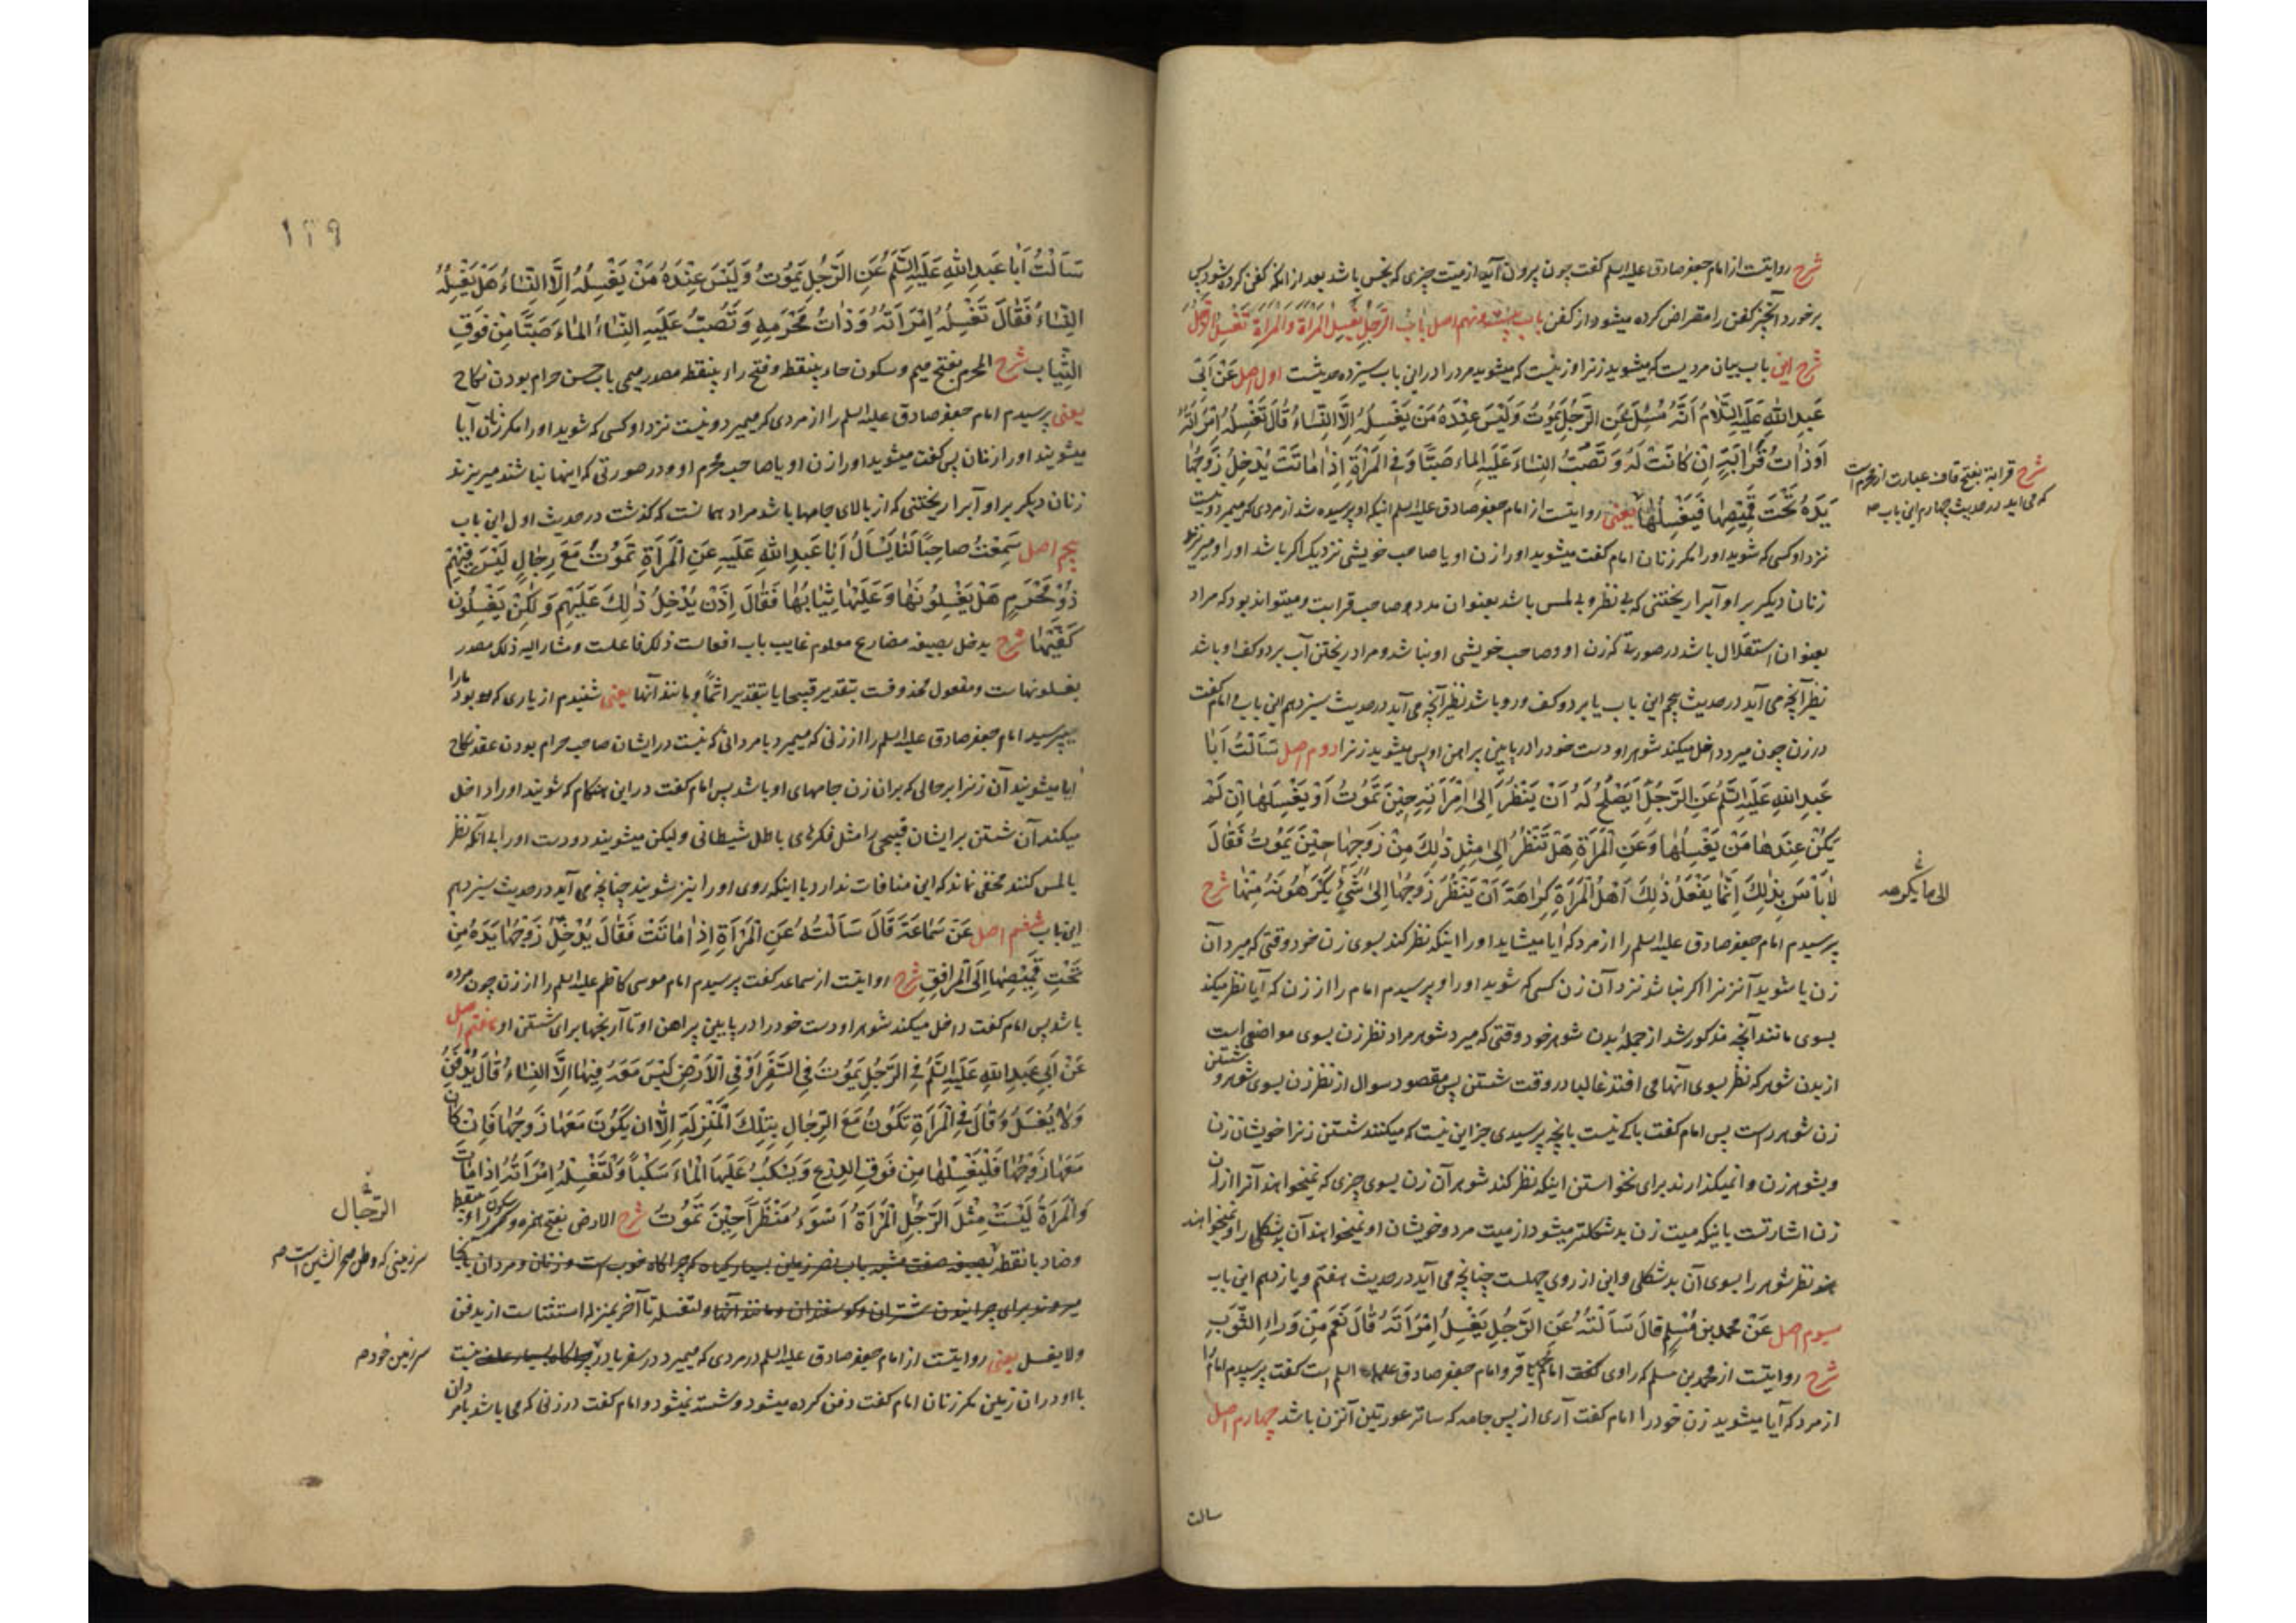 شرح روایتست از امام جعفر صادق علیه السلم گفت چون بیرون آید از میت چیزی که نجس باشد بعد از انکه کفن کرده شود پس
برخورد آنچیز کفن را مقراض کرده میشود از کفن باب نهم اصل باب الرجل یغسل المراة والمراة تغسل الرجل
شرح این باب بیان مردیست که میشوید زنرا و زنیست که میشوید مرد را در این باب سیزده حدیثست اول اصل عَنْ اَبی
عَبدِ اللهِ عَلَیهِ السَّلامُ اَنَّهُ سُئِلَ عَنِ الرَّجُلِ یَمُوتُ وَلَیْسَ عِنْدَهُ مَنْ یَغْسِلُهُ اِلَّا النِّسَاءُ قَالَ تَغْسِلُهُ اِمْرَاَتُهُ
اَوْ ذَاتُ قَرَابَتِهِ اِنْ کَانَتْ لَهُ وَ تَصُبُّ النِّسَاءُ عَلَیْهِ الماء صَبًّا وَفِی المَرْاَةِ اِذَا مَاتَتْ یُدْخِلُ زَوْجُهَا
یَدَهُ تَحْتَ قَمِیْصِهَا فَیَغْسِلُهَا یعنی روایتست از امام جعفر صادق علیه السلم اینکه او پرسیده شد از مردی که میمیرد و نیست
نزد او کسی که شوید او را مگر زنان امام گفت میشوید او را زن او یا صاحب خویشی نزدیک اگر باشد او را و میریزند
زنان دیگر بر او آبرا ریختنی که بی نظر و بی لمس باشد بعنوان مدد صاحب قرابت و میتواند بود که مراد
بعنوان استقلال باشد در صورتی که زن او و صاحب خویشی او نباشد و مراد ریختن آب بر دو کف او باشد
نظیر آنچه می آید در حدیث پنجم این باب یا بر دو کف و رو باشد نظیر آنچه می آید در حدیث سیزدهم این باب و امام گفت
در زن چون میرد داخل میکند شوهر او دست خود را در پایینی پیراهن او پس میشوید زنرا دوم اصل سَاَلْتُ اَبَا
عَبدِ اللهِ عَلَیهِ السَّلَم عَنِ الرَّجُلِ اَیَصْلُحُ لَهُ اَنْ یَنْظُرَ اِلی اِمْرَاَتِهِ حِیْنَ تَمُوتُ اَوْ یَغْسِلَهَا اِنْ لَمْ
یَکُنْ عِنْدَهَا مَنْ یَغْسِلُهَا وَعَنِ الْمَرْاَةِ هَلْ تَنْظُرُ اِلی مِثْلِ ذٰلِکَ مِنْ زَوْجِهَا حِیْنَ یَمُوتُ فَقَالَ
لَا بَاْسَ بِذٰلِکَ اِنَّمَا یَفْعَلُ ذٰلِکَ اَهْلُ الْمَرْاَةِ کَرَاهَةَ اَنْ یَنْظُرَ زَوْجُهَا اِلی شَیْءٍ یَکْرَهُونَهُ مِنْهَا شرح
پرسیدم امام جعفر صادق علیه السلم را از مرد که آیا میشاید او را اینکه نظر کند بسوی زن خود وقتی که میرد آن
زن یا شوید آنزنرا اگر نباشد نزد آن زن کسی که شوید او را و پرسیدم امام را از زن که آیا نظر میکند
بسوی مانند آنچه مذکور شد از جملهٔ بدن شوهر خود وقتی که میرد شوهر مراد نظر زن بسوی مواضعی است
از بدن شوهر که نظر بسوی آنها می افتد غالبا در وقت شستن پس مقصود سوال از نظر زن بسوی شوهر و شستن
زن شوهر راست پس امام گفت باکی نیست بانچه پرسیدی جز این نیست که میکنند شستن زنرا خویشان زن
و بشوهر زن وا نمیگذارند برای نخواستن اینکه نظر کند شوهر آن زن بسوی چیزی که نمیخواهند آنرا از آن
زن اشارتست باینکه میت زن بدشکلتر میشود از میت مرد و خویشان او نمیخواهند آن بدشکلی را و نمیخواهند
نظر شوهر را بسوی آن بدشکلی و این از روی جهلست چنانچه می آید در حدیث هفتم و یازدهم این باب
سیوم اصل عَنْ محمد بن مُسْلِمٍ قَالَ سَاَلْتُهُ عَنِ الرَّجُلِ یَغْسِلُ اِمْرَاَتَهُ قَالَ نَعَمْ مِنْ وَرَاءِ الثَّوْبِ
شرح روایتست از محمد بن مسلم که راوی امام محمد باقر و امام جعفر صادق علیهما السلم است گفت پرسیدم امام را
از مرد که آیا میشوید زن خود را امام گفت آری از پس جامه که ساتر عورتین آنزن باشد چهارم اصل
سالت
شرح قرابة بفتح قاف عبارت از محرم است
که می اید در حدیث چهارم این باب
الی ما یکرهه
١٢٩
سَاَلْتُ اَبَا عَبدِ اللهِ عَلَیهِ السَّلَم عَنِ الرَّجُلِ یَمُوتُ وَلَیْسَ عِنْدَهُ مَنْ یَغْسِلُهُ اِلَّا النِّسَاءُ هَلْ یَغْسِلُهُ
النِّسَاءُ فَقَالَ تَغْسِلُهُ اِمْرَاَتُهُ وَ ذَاتُ مَحْرَمِهِ وَ تَصُبُّ عَلَیهِ النِّسَاءُ المَاءَ صَبًّا مِنْ فَوْقِ
الثِّیَابِ شرح المحرم بفتح میم و سکون حاء بینقطه و فتح راء بینقطه مصدر میمی باب حسن حرام بودن نکاح
یعنی پرسیدم امام جعفر صادق علیه السلم را از مردی که میمیرد و نیست نزد او کسی که شوید او را مگر زنان آیا
میشویند او را زنان پس گفت میشوید او را زن او یا صاحب محرم او و در صورتی که اینها نباشند میریزند
زنان دیگر بر او آبرا ریختنی که از بالای جامها باشد مراد همانست که گذشت در حدیث اول این باب
پنجم اصل سَمِعْتُ صَاحِبًا لَنَا یَسْاَلُ اَبَا عَبدِ اللهِ عَلَیهِ عَنِ الْمَرْاَةِ تَمُوتُ مَعَ رِجَالٍ لَیْسَ فِیْهِمْ
ذُوْ مَحْرَمٍ هَلْ یَغْسِلُوْنَهَا وَعَلَیْهَا ثِیَابُهَا فَقَالَ اِذَنْ یُدْخِلُ ذٰلِکَ عَلَیْهِمْ وَلٰکِنْ یَغْسِلُوْنَ
کَفَّیْهَا شرح یدخل بصیغه مضارع معلوم غایب باب افعالست ذلک فاعلست و مشار الیه ذلک مصدر
یغسلونهاست و مفعول محذوفست بتقدیر قبیحا یا بتقدیر اثمًا و مانند آنها یعنی شنیدم از یاری که بود ما را
میپرسید امام جعفر صادق علیه السلم را از زنی که میمیرد با مردانی که نیست در ایشان صاحب حرام بودن عقد نکاح
ایا میشویند آن زنرا بر حالی که بر آن زن جامهای او باشد پس امام گفت در این هنگام که شویند او را داخل
میکند آن شستن بر ایشان قبیحی را مثل فکرهای باطل شیطانی ولیکن میشویند دو دست او را بی آنکه نظر
یا لمس کنند مخفی نماند که این منافات ندارد با اینکه روی او را نیز بشویند چنانچه می آید در حدیث سیزدهم
این باب ششم اصل عَنْ سَمَاعَةَ قَالَ سَاَلْتُهُ عَنِ الْمَرْاَةِ اِذَا مَاتَتْ فَقَالَ یُدْخِلُ زَوْجُهَا یَدَهُ مِنْ
تَحْتِ قَمِیْصِهَا اِلَی الْمَرَافِقِ شرح روایتست از سماعه گفت پرسیدم امام موسی کاظم علیه السلم را از زن چون مرده
باشد پس امام گفت داخل میکند شوهر او دست خود را در پایین پیراهن او تا آرنجها برای شستن او هفتم اصل
عَنْ اَبِی عَبدِ اللهِ عَلَیهِ السَّلَم فِی الرَّجُلِ یَمُوتُ فِی السَّفَرِ اَوْ فِی الْاَرْضِ لَیْسَ مَعَهُ فِیهَا اِلَّا النِّسَاءُ قَالَ یُدْفَنُ
وَلَا یُغْسَلُ وَقَالَ فِی الْمَرْاَةِ تَکُونُ مَعَ الرِّجَالِ بِتِلْکَ الْمَنْزِلَةِ اِلَّا اَنْ یَکُوْنَ مَعَهَا زَوْجُهَا فَاِنْ کَانَ
مَعَهَا زَوْجُهَا فَلْیَغْسِلْهَا مِنْ فَوْقِ الدِّرْعِ وَیَسْکُبُ عَلَیْهَا الْمَاءَ سَکْبًا وَلْتَغْسِلْهُ اِمْرَاَتُهُ اِذَا مَاتَ
وَالْمَرْاَةُ لَیْسَتْ مِثْلَ الرَّجُلِ الْمَرْاَةُ اَسْوَءُ مَنْظَرًا حِیْنَ تَمُوتُ شرح الارض بفتح همزه و سکون راء بینقطه
وضاد بانقطه
و لتغسله تا آخر بمنزله استثناست از یدفن
ولا یغسل یعنی روایتست از امام جعفر صادق علیه السلم در مردی که میمیرد در سفر یا در نیست
با او در ان زمین مگر زنان امام گفت دفن کرده میشود و شسته نمیشود و امام گفت در زنی که می باشد با مردان
الرجال
سرزمینی که
سرزمین خود